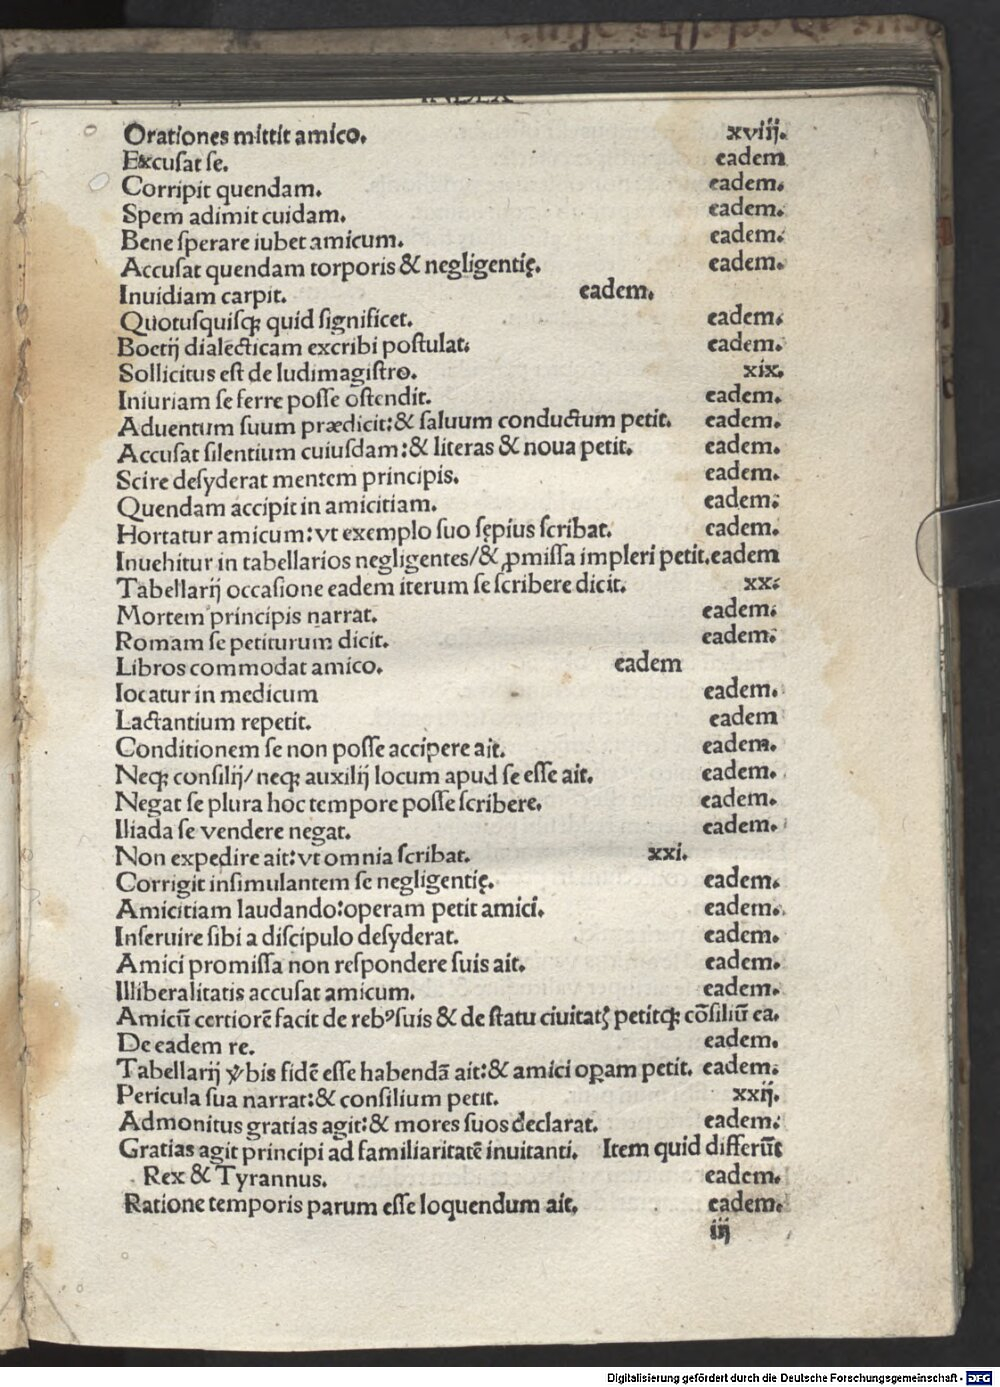 INDEX
Orationes mittit amico. xviij.
Excusat se. eadem
Corripit quendam. eadem.
Spem adimit cuidam. eadem.
Bene sperare iubet amicum. eadem.
Accusat quendam torporis & negligentię. eadem.
Inuidiam carpit. eadem.
Quotusquisqꝫ quid significet. eadem.
Boetij dialecticam excribi postulat. eadem.
Sollicitus est de ludimagistro. xix.
Iniuriam se ferre posse ostendit. eadem.
Aduentum suum prædicit:& saluum conductum petit. eadem.
Accusat silentium cuiusdam:& literas & noua petit. eadem.
Scire desyderat mentem principis. eadem.
Quendam accipit in amicitiam. eadem.
Hortatur amicum:vt exemplo suo sępius scribat. eadem.
Inuehitur in tabellarios negligentes/& ꝓmissa impleri petit.eadem
Tabellarij occasione eadem iterum se scribere dicit. xx.
Mortem principis narrat. eadem.
Romam se petiturum dicit. eadem.
Libros commodat amico. eadem
Iocatur in medicum eadem.
Lactantium repetit. eadem
Conditionem se non posse accipere ait. eadem.
Neqꝫ consilij/neqꝫ auxilij locum apud se esse ait. eadem.
Negat se plura hoc tempore posse scribere. eadem.
Iliada se vendere negat. eadem.
Non expedire ait:vt omnia scribat. xxi.
Corrigit insimulantem se negligentię. eadem.
Amicitiam laudando:operam petit amici. eadem.
Inseruire sibi a discipulo desyderat. eadem.
Amici promissa non respondere suis ait. eadem.
Illiberalitatis accusat amicum. eadem.
Amicū certiorē facit de rebꝰ suis & de statu ciuitatꝭ petitqꝫ cōsiliū ea.
De eadem re. eadem.
Tabellarij ꝟbis fidē esse habendā ait:& amici oꝑam petit. eadem.
Pericula sua narrat:& consilium petit. xxij.
Admonitus gratias agit:& mores suos declarat. eadem.
Gratias agit principi ad familiaritatē inuitanti. Item quid differūt
Rex & Tyrannus. eadem.
Ratione temporis parum esse loquendum ait. eadem.
iij
Digitalisierung gefördert durch die Deutsche Forschungsgemeinschaft - DFG